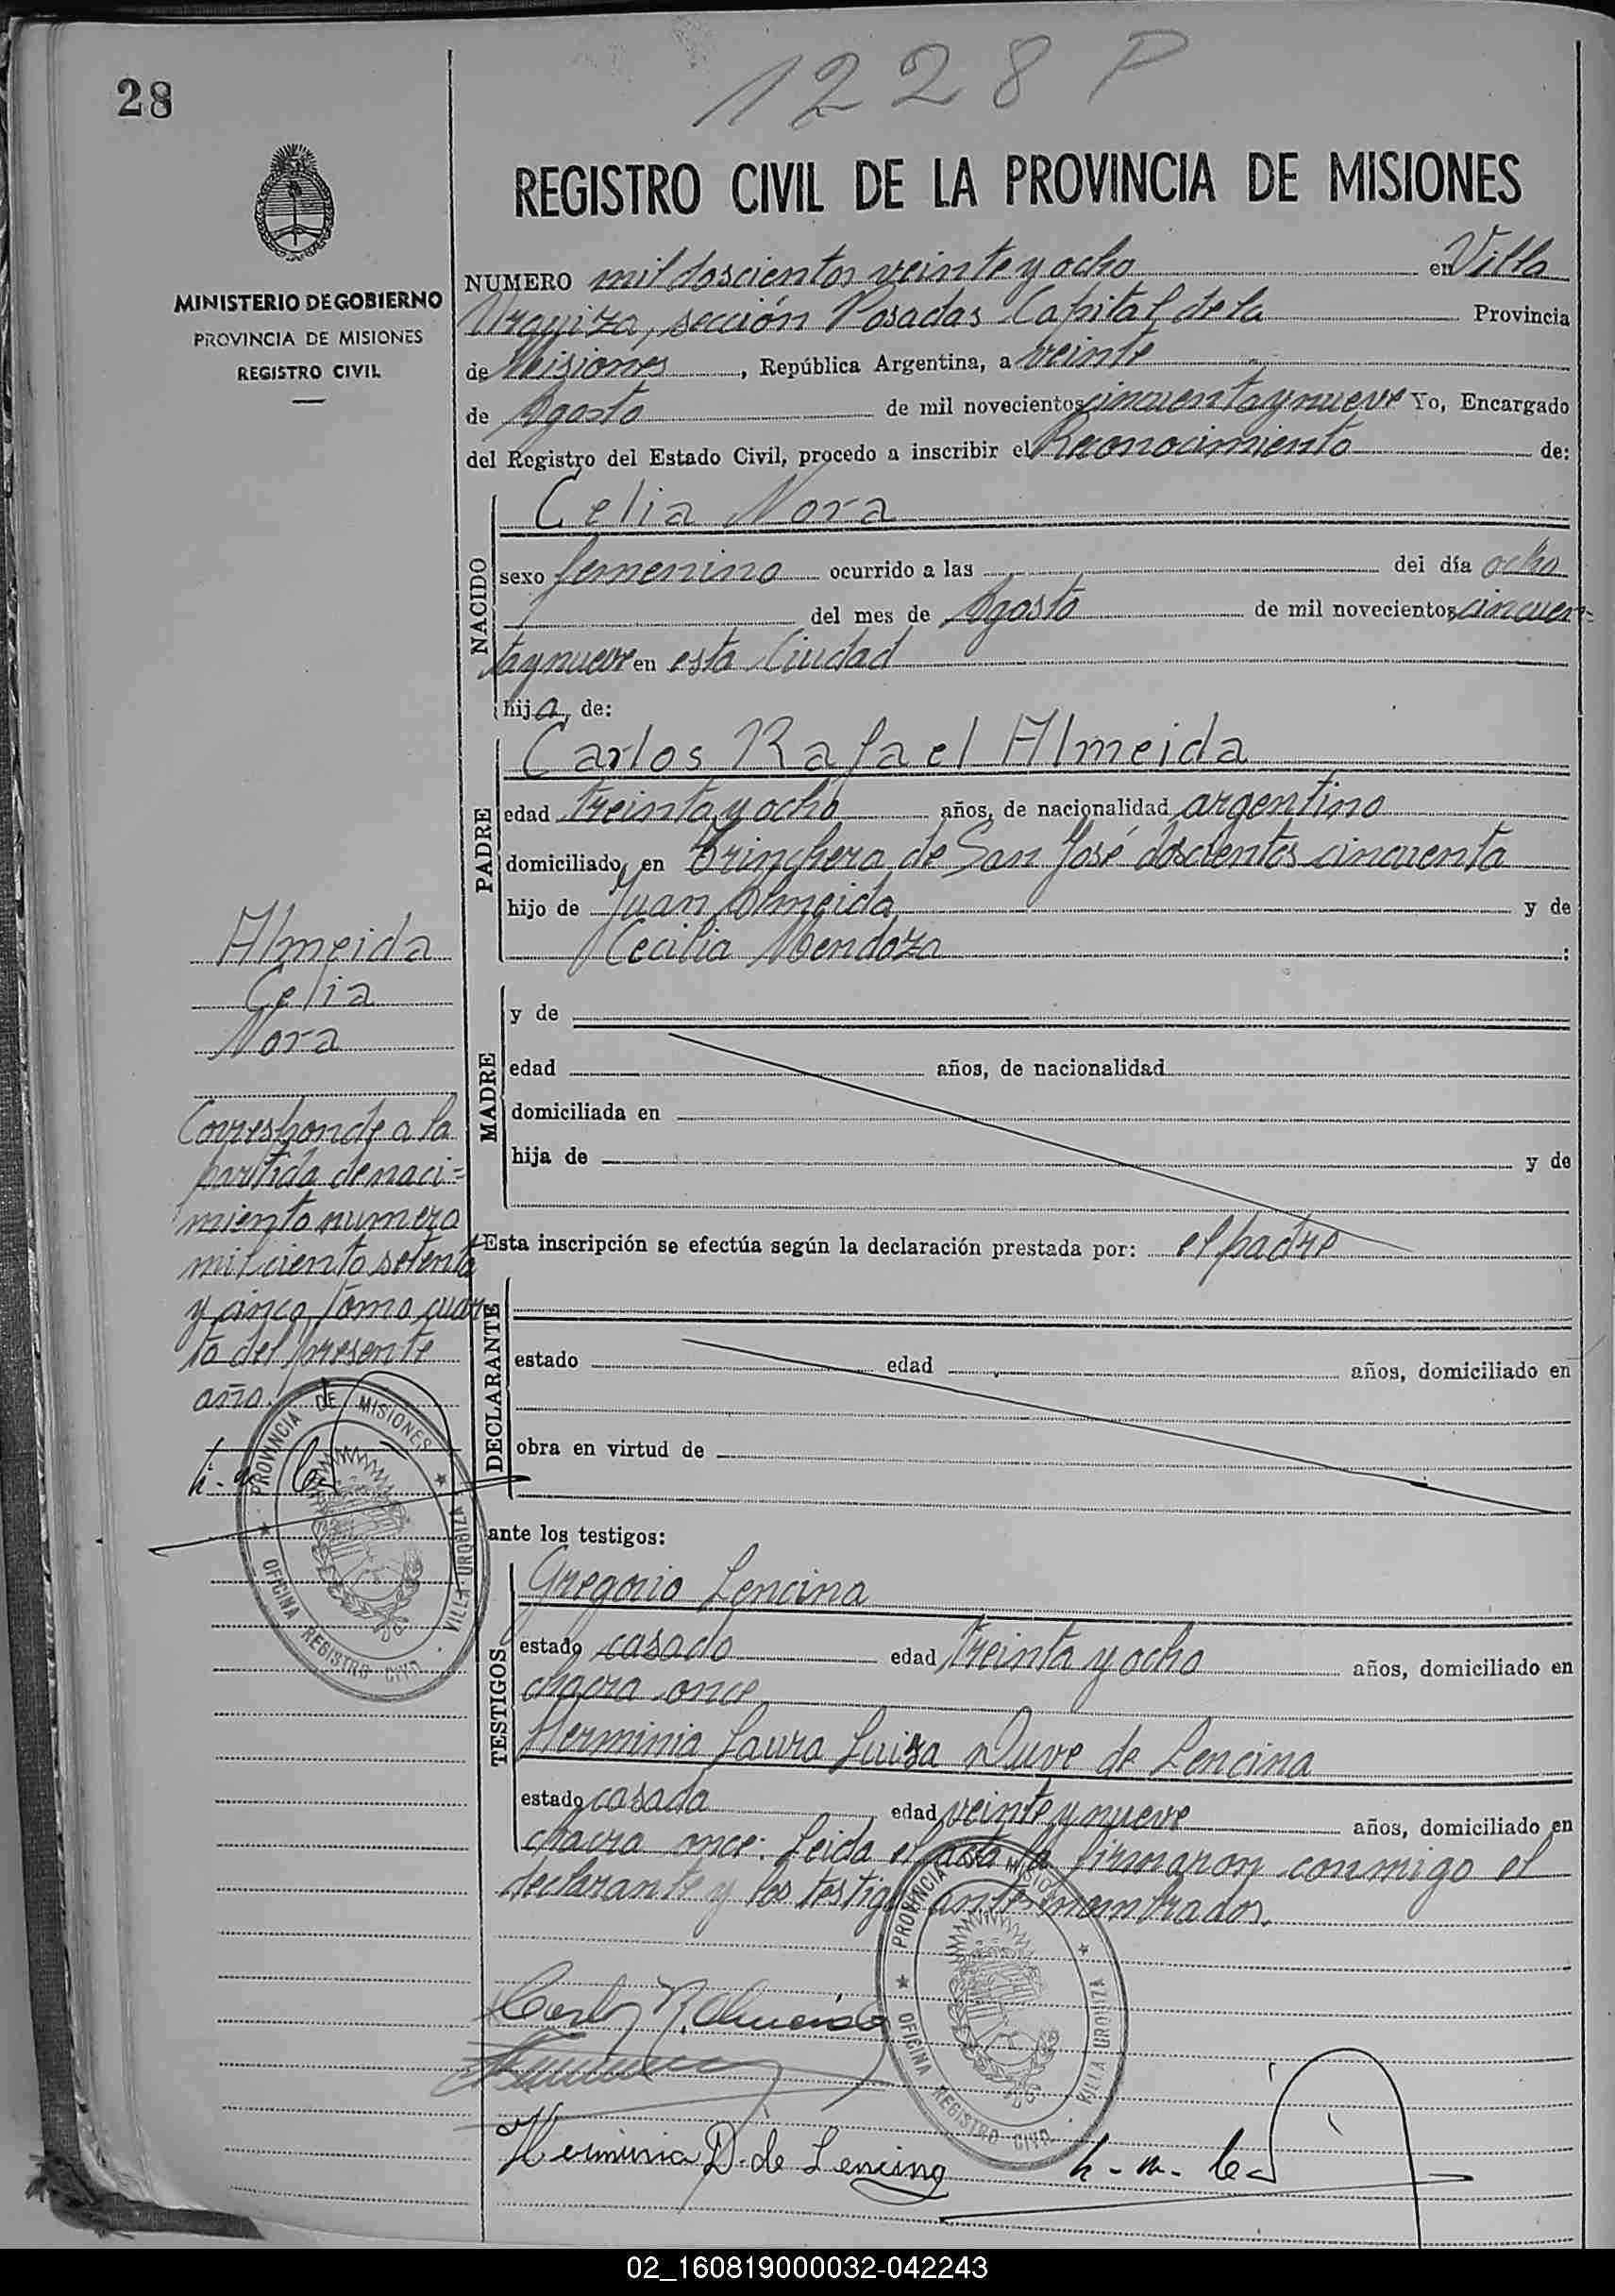 28
1228 P
MINISTERIO DE GOBIERNO
PROVINCIA DE MISIONES
REGISTRO CIVIL
REGISTRO CIVIL DE LA PROVINCIA DE MISIONES
NUMERO mil doscientos veinte y ocho en Villa
Urquiza, sección Posadas Capital de la Provincia
de Misiones, República Argentina, a veinte
de Agosto de mil novecientos cincuenta y nueve Yo, Encargado
del Registro del Estado Civil, procedo a inscribir el Reconocimiento de:
NACIDO
Celia Nora
sexo femenino ocurrido a las del día ocho
del mes de Agosto de mil novecientos cincuen-
ta y nueve en esta Ciudad
hija, de:
PADRE
Carlos Rafael Almeida
edad treinta y ocho años, de nacionalidad argentino
domiciliado en Trinchera de San José doscientos cincuenta
hijo de Juan Almeida y de
Cecilia Mendoza :
MADRE
y de
edad años, de nacionalidad
domiciliada en
hija de y de
Esta inscripción se efectúa según la declaración prestada por: el padre
DECLARANTE
estado edad años, domiciliado en
obra en virtud de
ante los testigos:
TESTIGOS
Gregorio Lencina
estado casado edad treinta y ocho años, domiciliado en
chacra once
Herminia Laura Luisa Duve de Lencina
estado casada edad veinte y nueve años, domiciliado en
chacra once. Leida el acta la firmaron conmigo el
declarante y los testigos antes nombrados.
Almeida
Celia
Nora
Corresponde a la
partida de naci-
miento numero
mil ciento setenta
y cinco, Tomo cuar
to del presente
año.
PROVINCIA DE MISIONES
OFICINA REGISTRO CIVIL VILLA URQUIZA
Carlos R. Almeida
Herminia D. de Lencina
PROVINCIA DE MISIONES
OFICINA REGISTRO CIVIL VILLA URQUIZA
02_160819000032-042243